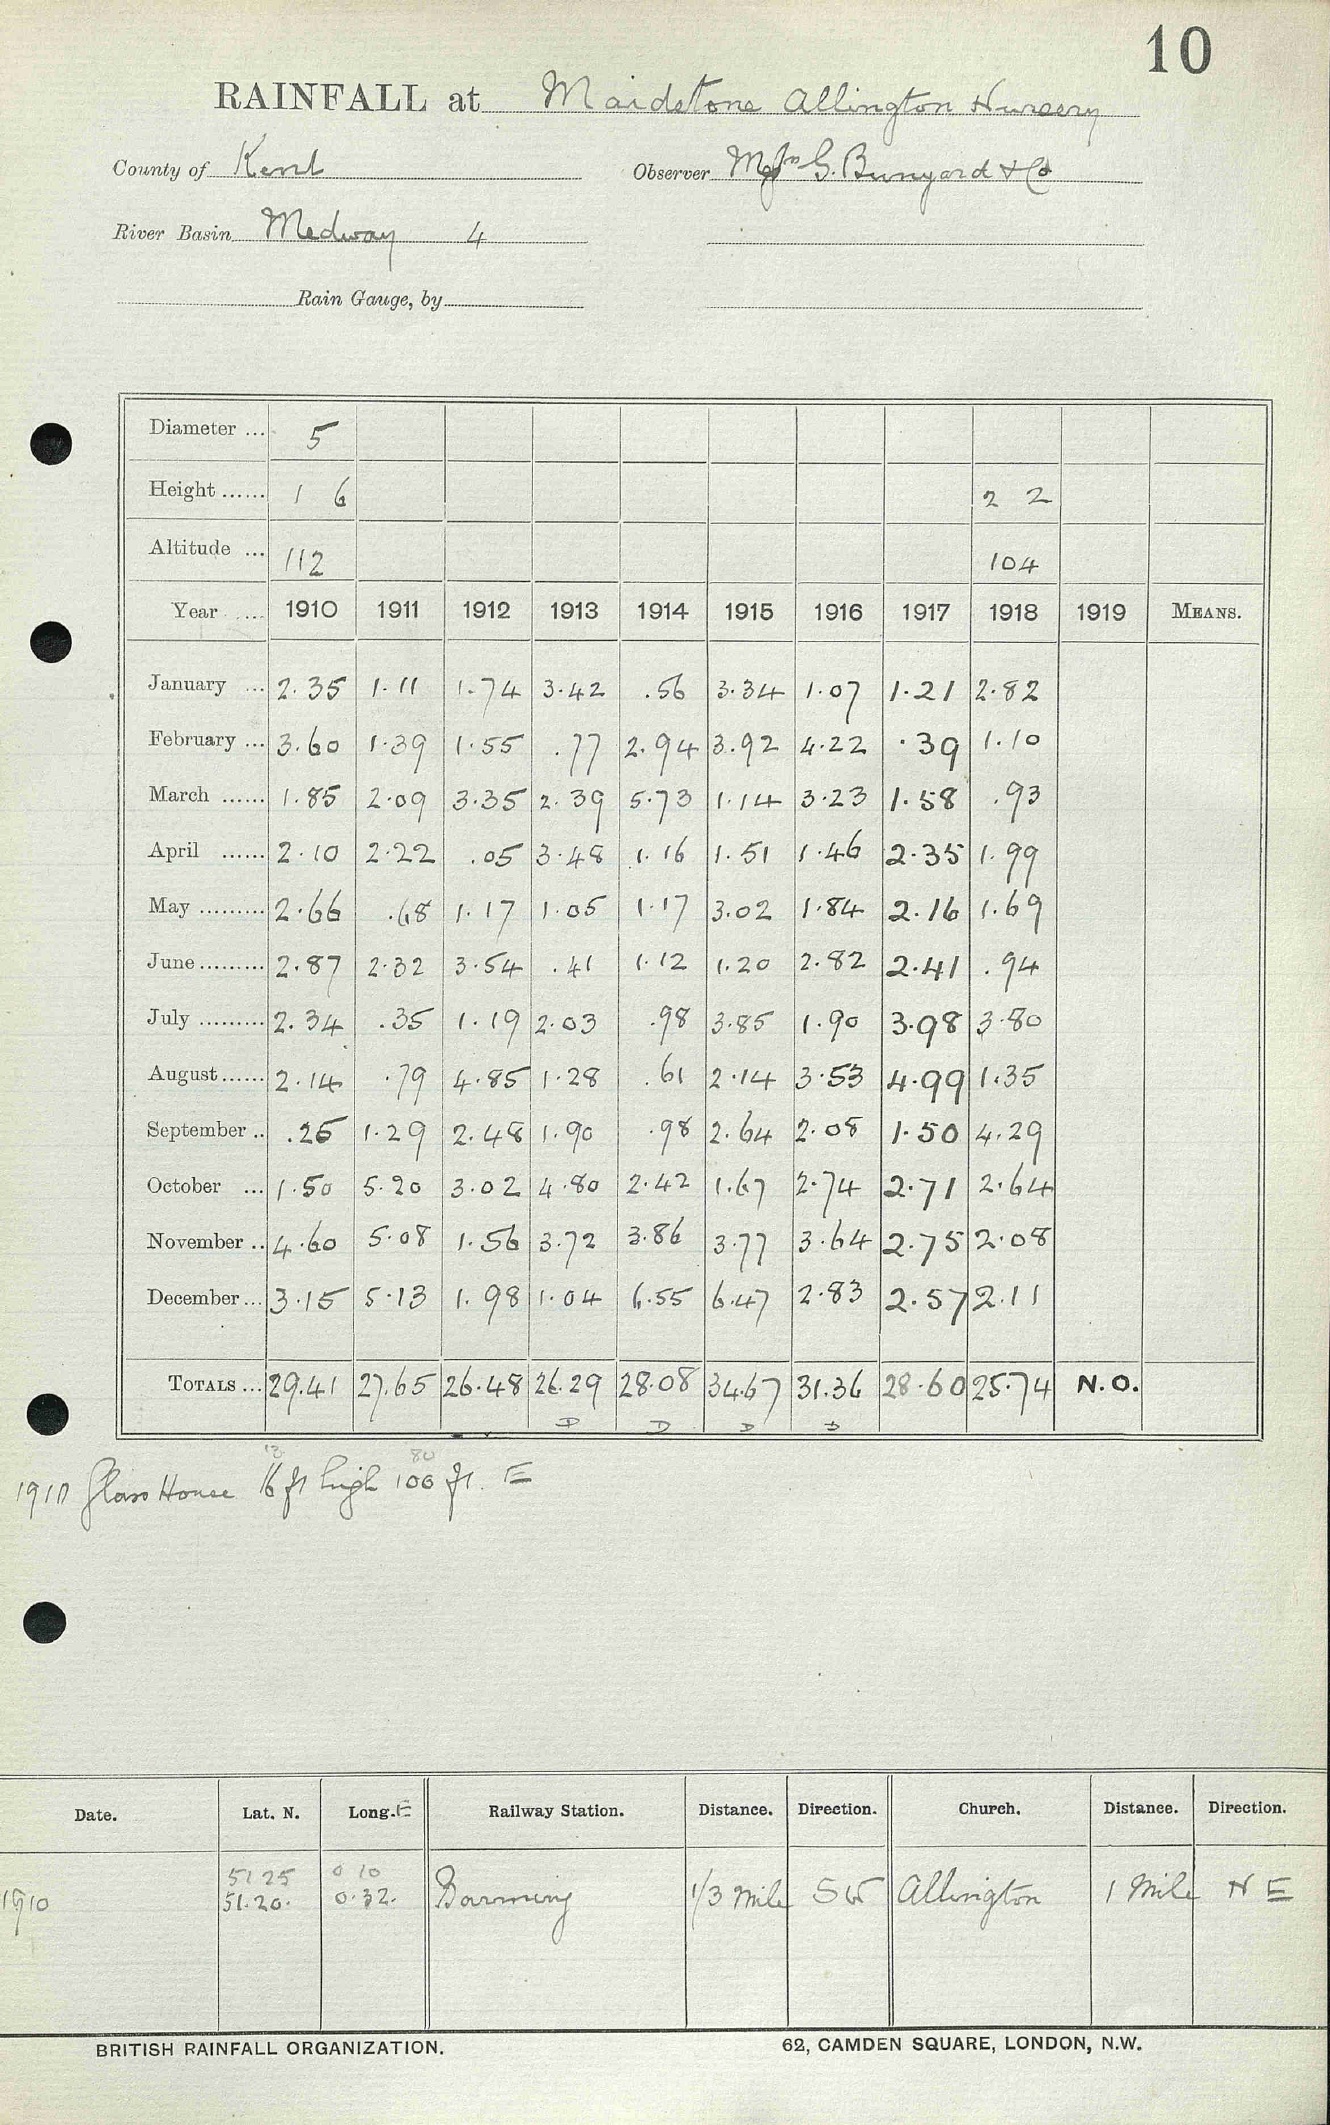 10
RAINFALL at Maidstone Allington Nursery
County of Kent Observer G. Bunyard & Co
River Basin Medway 4
Rain Gauge, by
Diameter ... 5
Height ...... 1 6 2 2
Altitude ... 112 104
Year .... 1910 1911 1912 1913 1914 1915 1916 1917 1918 1919 MEANS.
January ... 2.35 1.11 1.74 3.42 .56 3.34 1.07 1.21 2.82
February ... 3.60 1.39 1.55 .77 2.94 3.92 4.22 .39 1.10
March ...... 1.85 2.09 3.35 2.39 5.73 1.14 3.23 1.58 .93
April ...... 2.10 2.22 .05 3.48 1.16 1.51 1.46 2.35 1.99
May ......... 2.66 .68 1.17 1.05 1.17 3.02 1.84 2.16 1.69
June ......... 2.87 2.32 3.54 .41 1.12 1.20 2.82 2.41 .94
July ......... 2.34 .35 1.19 2.03 .98 3.85 1.90 3.98 3.80
August...... 2.14 .79 4.85 1.28 .61 2.14 3.53 4.99 1.35
September .. .25 1.29 2.48 1.90 .98 2.64 2.08 1.50 4.29
October ... 1.50 5.20 3.02 4.80 2.42 1.67 2.74 2.71 2.64
November .. 4.60 5.08 1.56 3.72 3.86 3.77 3.64 2.75 2.08
December... 3.15 5.13 1.98 1.04 6.55 6.47 2.83 2.57 2.11
TOTALS ... 29.41 27.65 26.48 26.29 28.08 34.67 31.36 28.60 25.74 N.O.
D D D D
12 80
1910 Glass House 16 ft high 100 ft. E
Date. Lat. N. Long. E Railway Station. Distance. Direction. Church. Distance. Direction.
51 25 0 10
1910 51.20. 0.32. Barming 1/3 Mile SW Allington 1 Mile N E
BRITISH RAINFALL ORGANIZATION. 62, CAMDEN SQUARE, LONDON, N.W.